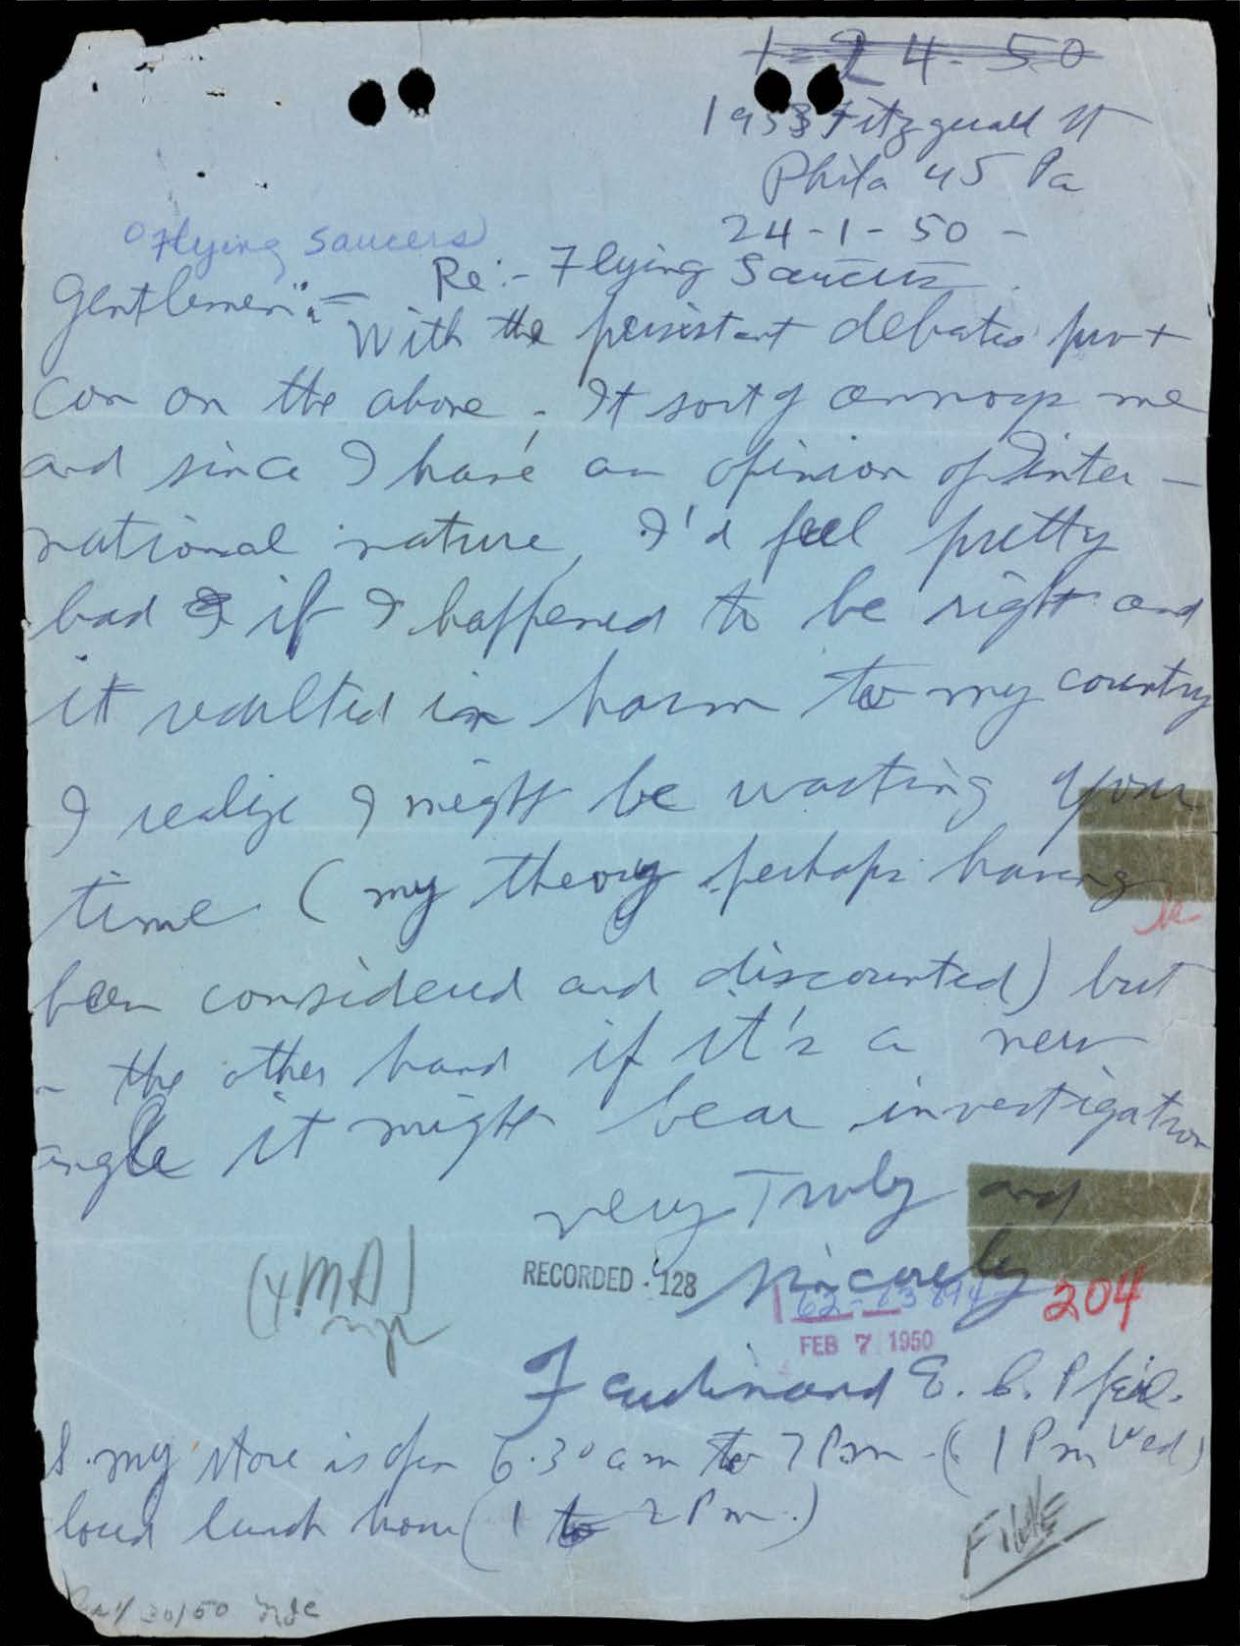 1-24-50
1933 Fitzgerald St
Phila 45 Pa
24-1-50-
Flying Saucers
Re:- Flying Saucers
Gentlemen:-
With the persistant debates pro +
con on the above, It sort of annoys me
and since I have an opinion of inter-
national nature, I'd feel pretty
bad if I happened to be right and
it resulted in harm to my country
I realize I might be wasting your
time (my theory perhaps having
been considered and discounted) but
the other hand if it's a new
angle it might bear investigation
very Truly and
sincerely
RECORDED - 128
62-83894-
204
FEB 7 1950
Ferdinand E. C. Pfeil.
S. my store is open 6.30 am to 7 Pm - (1 Pm Wed)
losed lunch hour (1 to 2 Pm.)
FILE
30/50